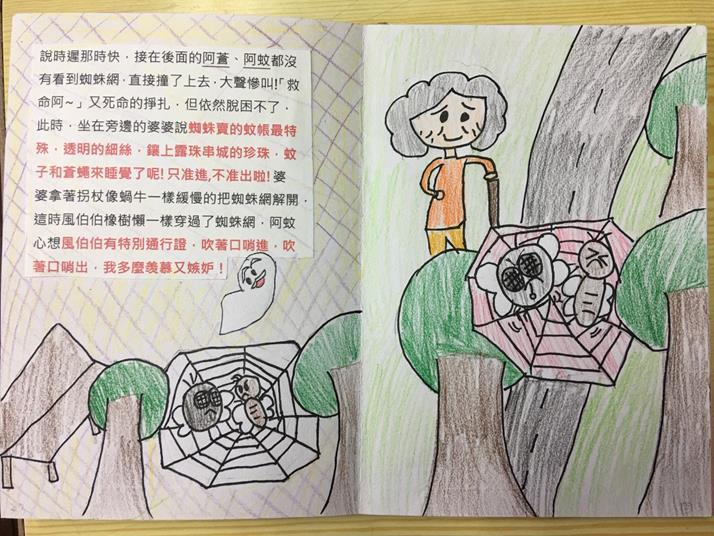 說時遲那時快，接在後面的阿蒼、阿蚊都沒
有看到蜘蛛網，直接撞了上去，大聲慘叫！「救
命阿~」又死命的掙扎，但依然脫困不了，
此時，坐在旁邊的婆婆說蜘蛛賣的蚊帳最特
殊，透明的細絲，鑲上露珠串城的珍珠，蚊
子和蒼蠅來睡覺了呢！只准進,不准出啦！婆
婆拿著拐杖像蝸牛一樣緩慢的把蜘蛛網解開，
這時風伯伯橡樹懶一樣穿過了蜘蛛網，阿蚊
心想風伯伯有特別通行證，吹著口哨進，吹
著口哨出，我多麼羨慕又嫉妒！